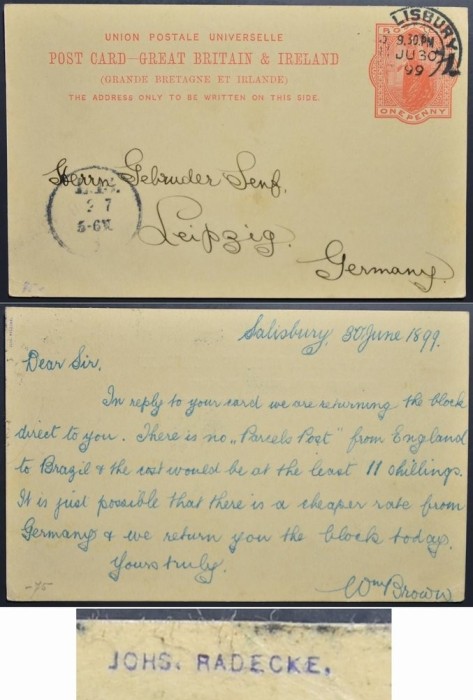 UNION POSTALE UNIVERSELLE
POST CARD—GREAT BRITAIN & IRELAND
(GRANDE BRETAGNE ET IRLANDE)
THE ADDRESS ONLY TO BE WRITTEN ON THIS SIDE.
LISBURY
9.30 PM
JU 30
99
ONE PENNY
Herrn Gebruder Senf.
Leipzig.
Germany.
2 7
Salisbury, 30 June 1899.
Dear Sir,
In reply to your card we are returning the block
direct to you. There is no „Parcels Post" from England
to Brazil & the cost would be at the least 11 shillings.
It is just possible that there is a cheaper rate from
Germany & we return you the block today.
Yours truly.
Wm Brown
-75
JOHS. RADECKE.